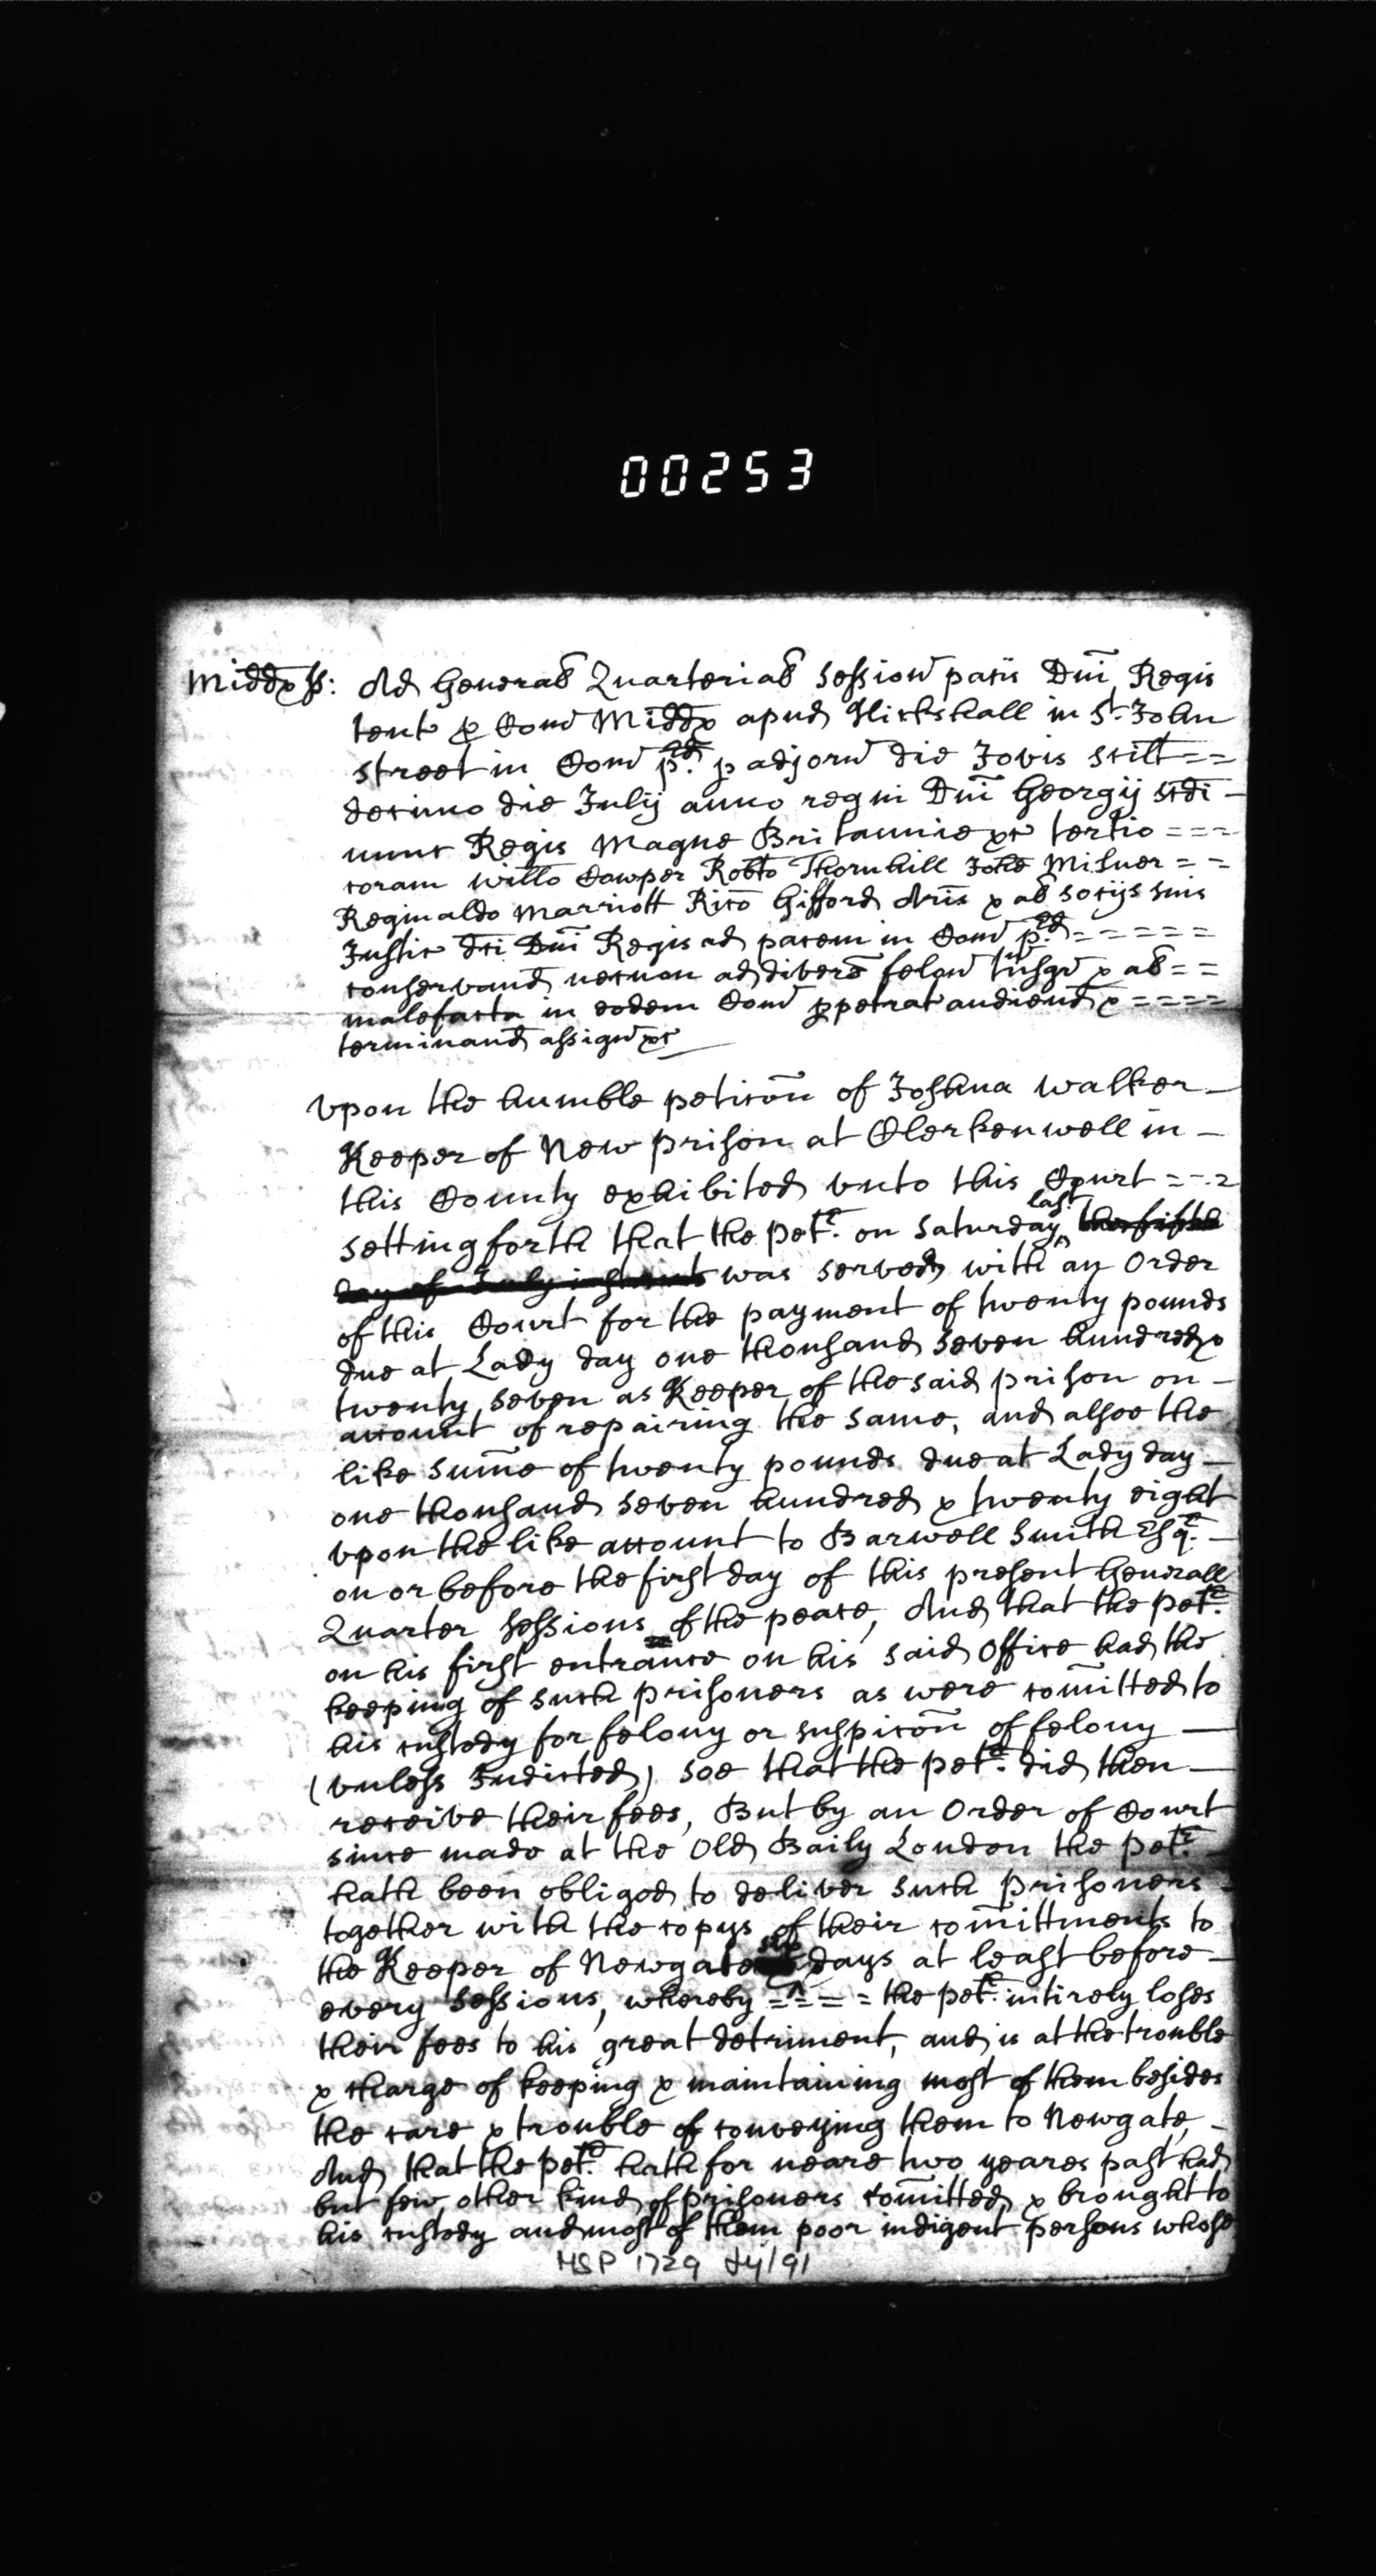 00253
Middx ss: Ad General Quarterial Session pacis Dni Regis
tent p Com Middx apud Hickshall in St. John
Street in Com pd. p adjorn die Jovis scilt ==
decimo die July anno regni Dni Georgij scdi -
nunc Regis Magne Britannie &c tertio ===
coram Willo Cowper Robto Thornhill Johe Milner = =
Reginaldo Marriott Rico Gifford Aris & al socijs suis
Justic dci Dni Regis ad pacem in Com pd. =====
conservand necnon ad divers felon Tnsgr & al ==
malefacta in eodem Com ppetrat audiend & ====
terminand assign &c
Vpon the humble peticon of Joshua Walker -
Keeper of New prison at Clerkenwell in -
this County exhibited vnto this Court ===
setting forth that the Petr. on Saturday last the fifth
day of July instant was served with an Order
of this Court for the payment of twenty pounds
due at Lady day one thousand seven hundred &
twenty seven as Keeper of the said prison on -
account of repairing the same, and alsoe the
like summe of twenty pounds due at Lady day -
one thousand seven hundred & twenty eight
vpon the like account to Barwell Smith Esqr. -
on or before the first day of this present Generall
Quarter Sessions of the peace, And that the Petr.
on his first entrance on his said Office had the
keeping of such prisoners as were comitted to
his custody for felony or suspicon of felony -
(vnless Indicted) soe that the petr. did then -
receive their fees, But by an Order of Court
since made at the Old Baily London the petr. -
hath been obliged to deliver such prisoners -
together with the copys of their comittments to
the Keeper of Newgate six days at least before -
every Sessions, whereby = = = = the petr. intirely loses
their fees to his great detriment, and is at the trouble
& charge of keeping & maintaining most of them besides
the care & trouble of conveying them to Newgate, -
And that the petr. hath for neare two yeares past had
but few other kind of prisoners comitted & brought to
his custody and most of them poor indigent persons whose
MSP 1729 Jy/91